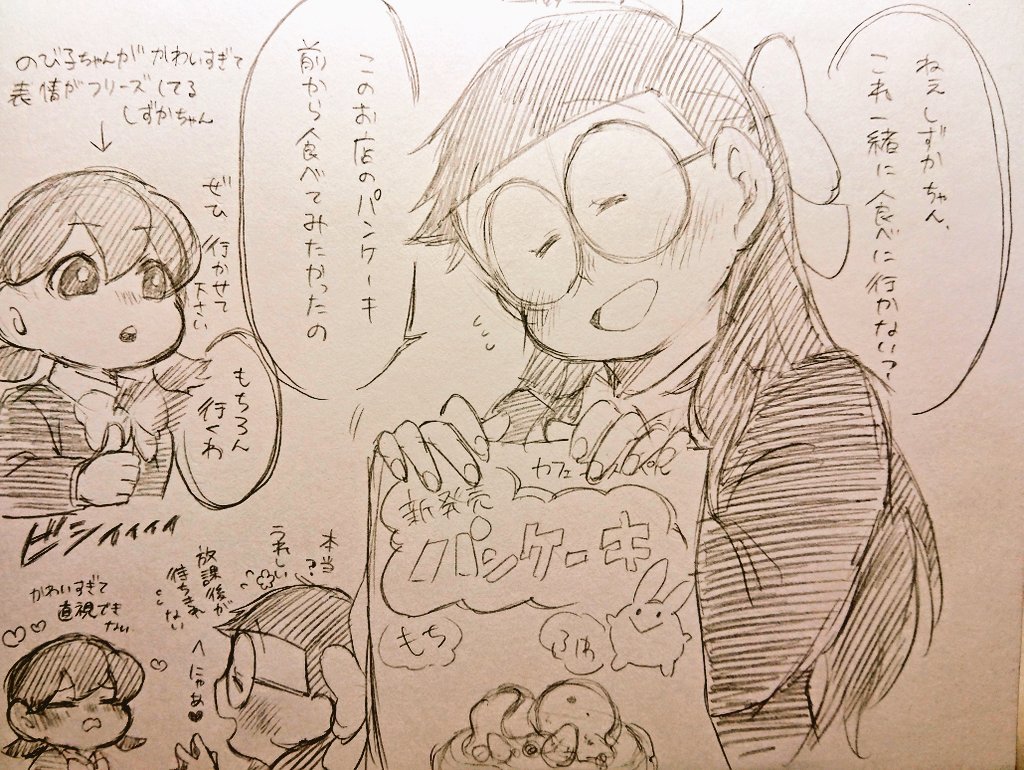 ねえしずかちゃん、
これ一緒に食べに行かない?
このお店のパンケーキ
前から食べてみたかったの
のび子ちゃんがかわいすぎて
表情がフリーズしてる
しずかちゃん
ぜひ
行かせて
下さい
もちろん
行くわ
ビシィィィィ
カフェ
新発売
パンケーキ
もち
ふわ
本当?
うれしい
放課後が
待ちきれ
ない
へにゃあ♥
かわいすぎて
直視でき
ない